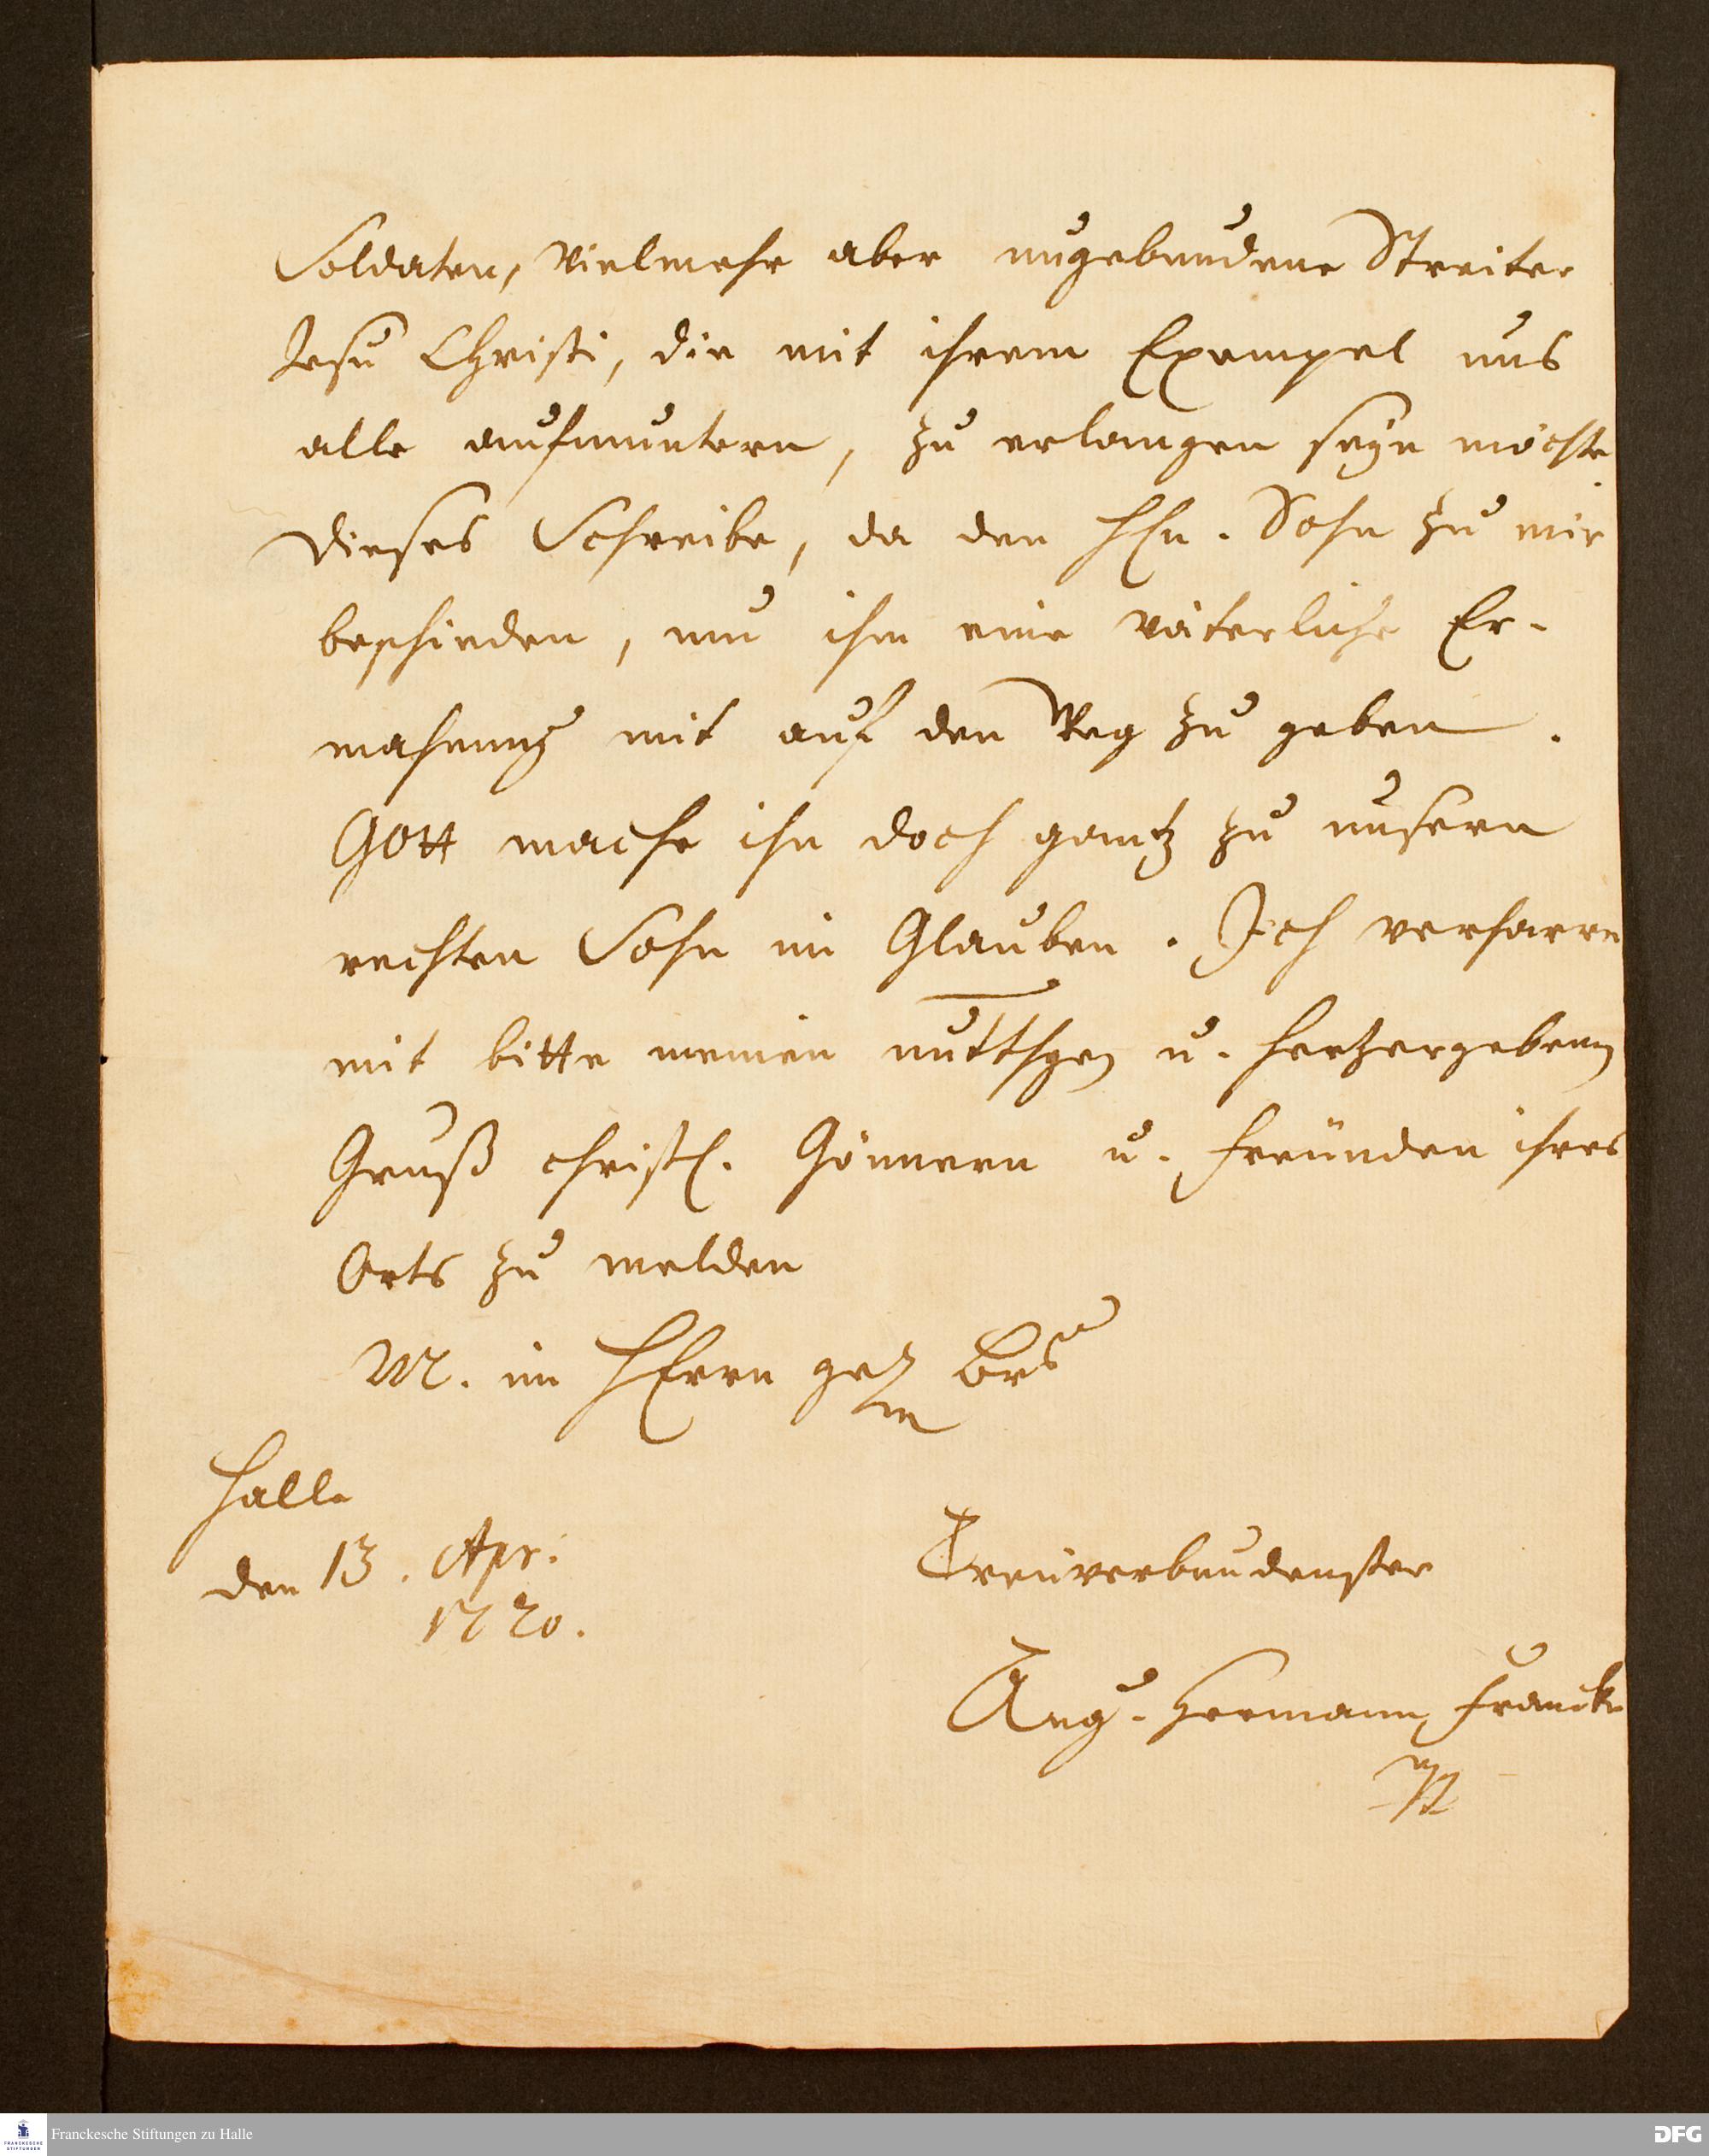 Soldaten, vielmehr aber ungebundene Streiter
Jesu Christi, die mit ihrem Exempel uns
alle aufmuntern, zu erlangen seyn möchte.
Dieses Schreibe, da den HEn. Sohn zu mir
beschieden, um ihm eine väterliche Er-
mahnung mit auf den Weg zu geben.
GOtt mache ihn doch gantz zu unsern
rechten Sohn im Glauben. Ich verharre
mit bitte meinen u. hertzergebenen
Gruß christl. Gönnern u. Freünden ihres
Orts zu melden
M. im HErrn
Halle
den 13. Apr.
1720.
Treüverbundenster
Aug. Hermann Francke
Franckesche Stiftungen zu Halle
DFG
FRANCKESCHE
STIFTUNGEN